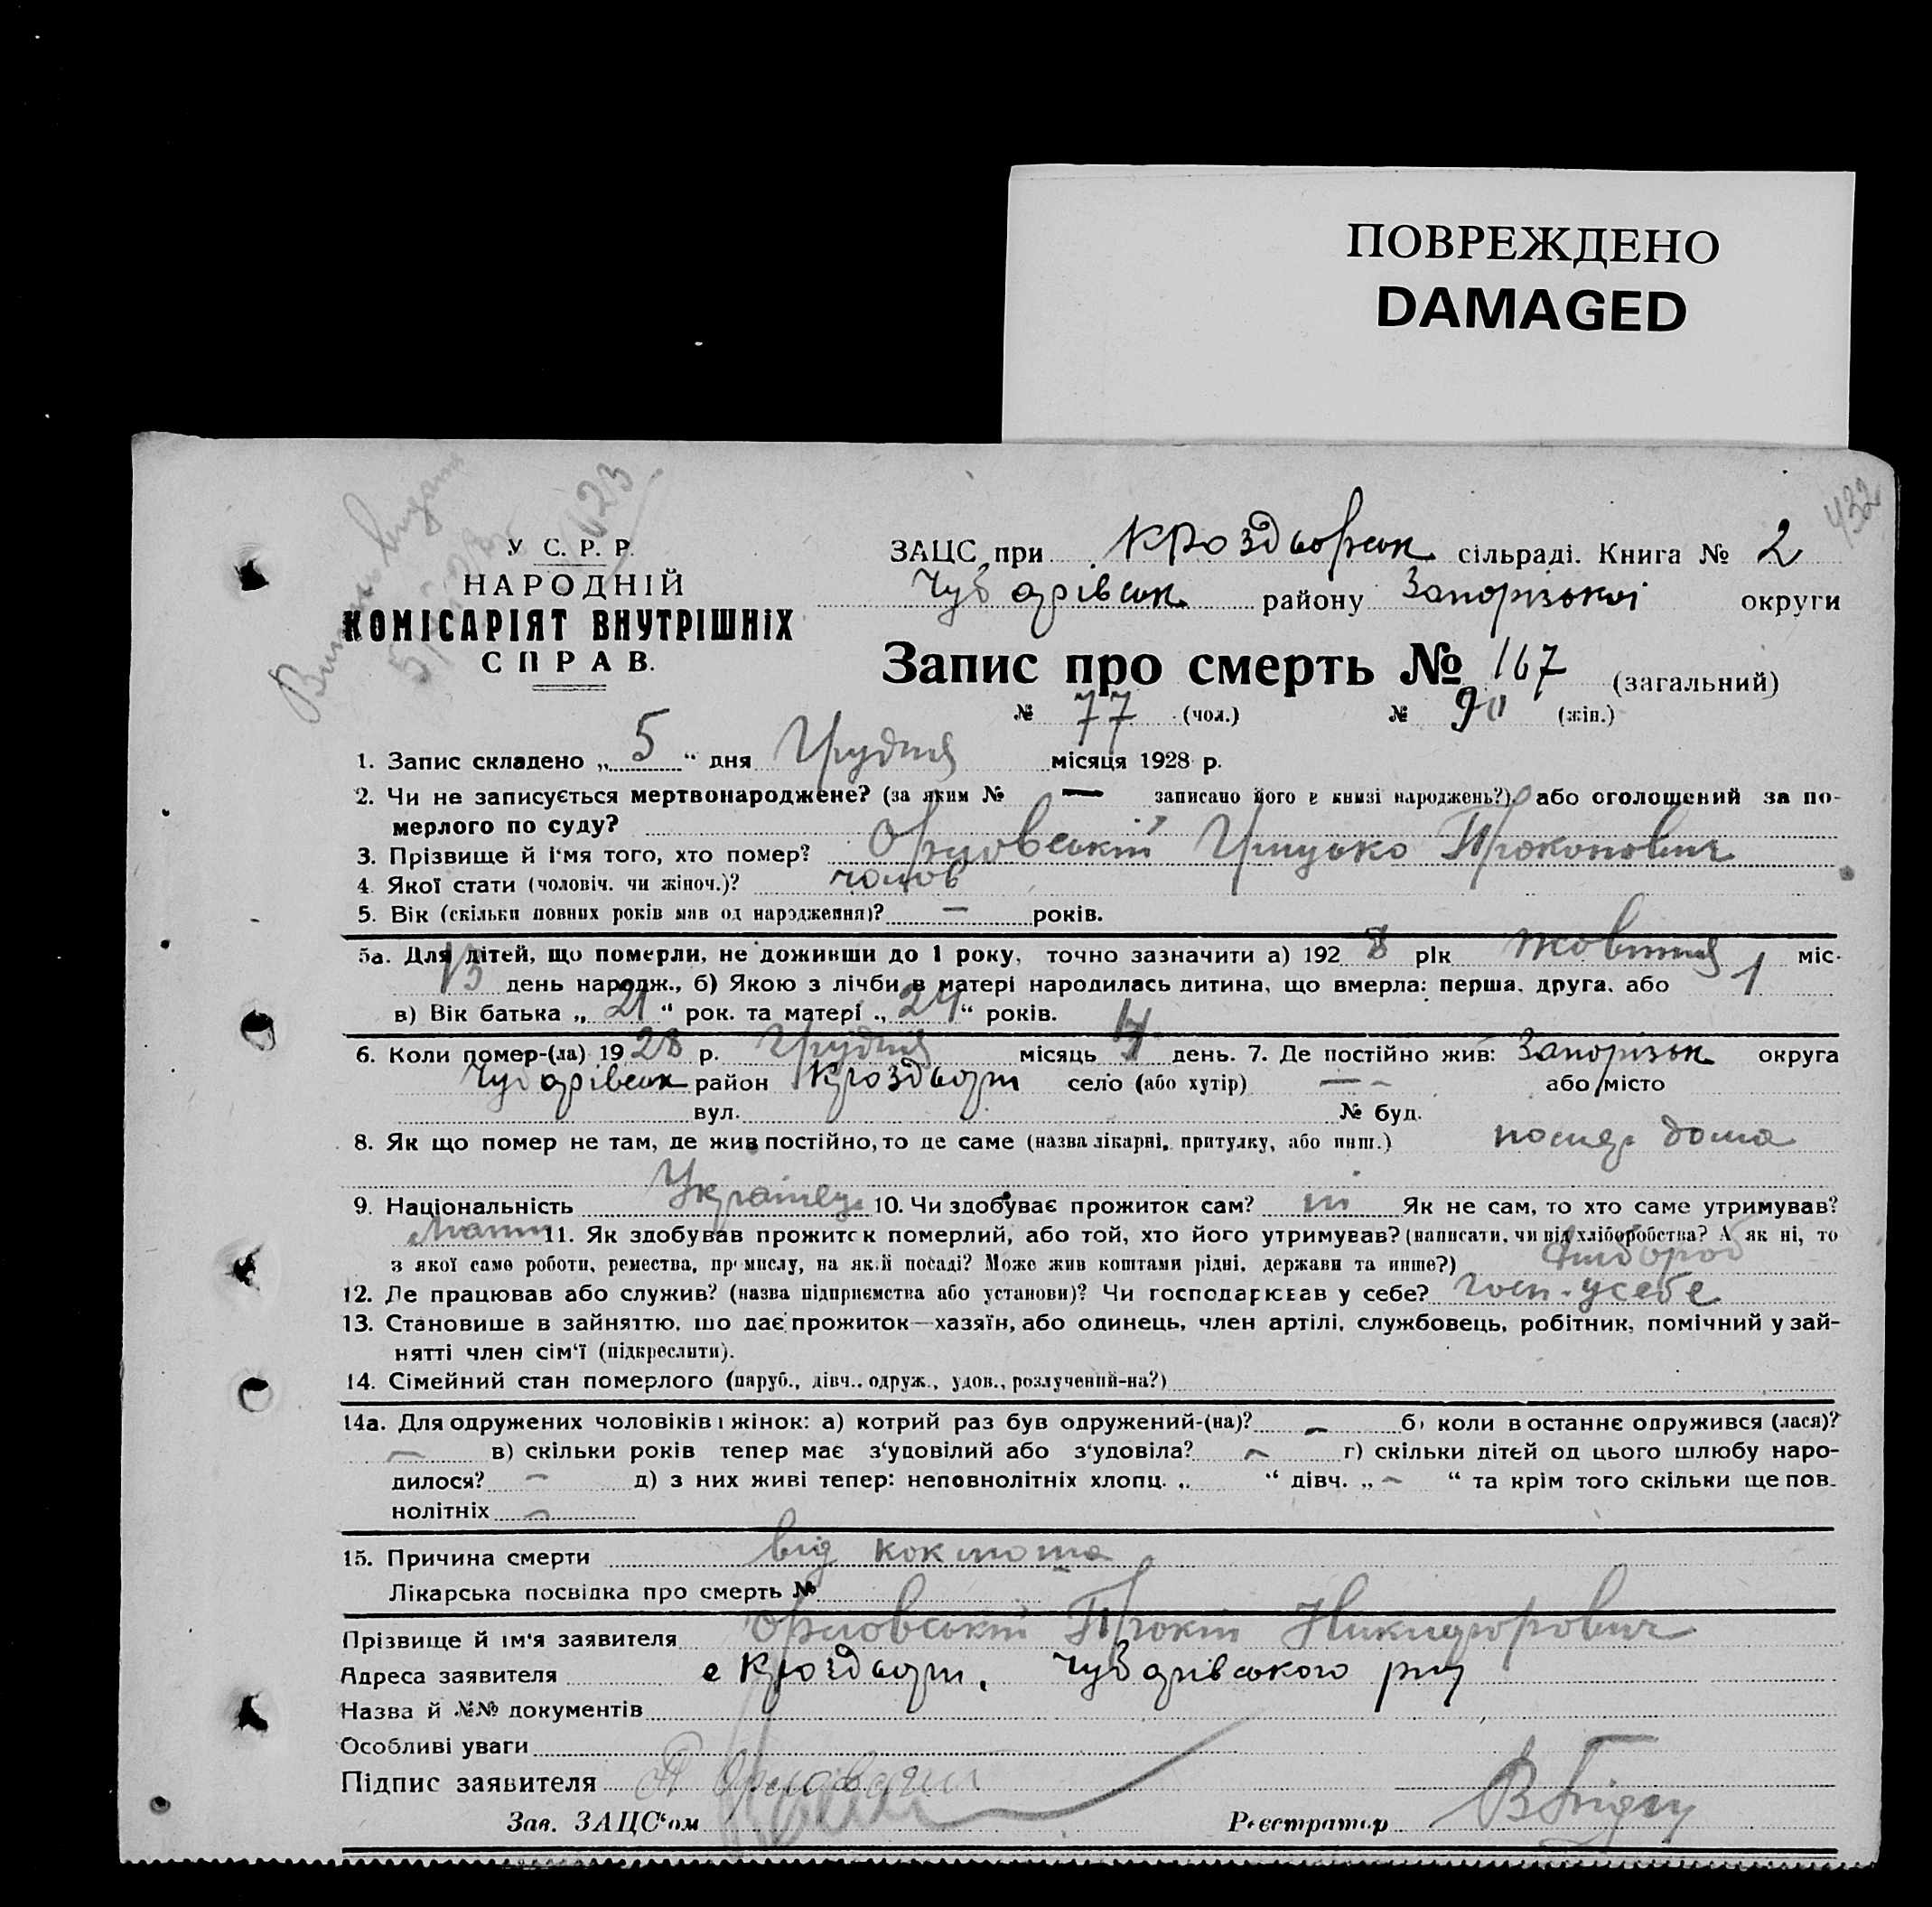 ПОВРЕЖДЕНО
DAMAGED
432
У С. Р. Р.
НАРОДНІЙ
КОМІСАРІЯТ ВНУТРІШНІХ
СПРАВ.
ЗАЦС при сільраді. Книга № 2
Чубарівськ району Запорізької округи
Запис про смерть № 167 (загальний)
№ 77 (чол.) № 90 (жін.)
1. Запис складено „ 5 “ дня Грудня місяця 1928 р.
2. Чи не записується мертвонароджене? (за яким № — записано його в книзі народжень?), або оголошений за по-
мерлого по суду?
3. Прізвище й і'мя того, хто помер? Орловський Грицько Прокопович
4. Якої стати (чоловіч. чи жіноч.)? чолов
5. Вік (скільки повних років мав од народження)? — років.
5а. Для дітей, що померли, не доживши до 1 року, точно зазначити а) 1928 рік жовтня міс.
13 день народж., б) Якою з лічби в матері народилась дитина, що вмерла: перша, друга, або 1
в) Вік батька „ 21 “ рок. та матері „ 24 “ років.
6. Коли помер-(ла) 1928 р. Грудня місяць день. 7. Де постійно жив: Запорізьк округа
Чубарівськ район село (або хутір) — або місто
вул. № буд.
8. Як що помер не там, де жив постійно, то де саме (назва лікарні, притулку, або инш.) дома
9. Національність Українець 10. Чи здобуває прожиток сам? ні Як не сам, то хто саме утримував?
11. Як здобував прожиток померлий, або той, хто його утримував? (написати, чи від хліборобства? А як ні, то
з якої саме роботи, ремества, промислу, на якій посаді? Може жив коштами рідні, держави та инше?) хлібороб
12. Де працював або служив? (назва підприємства або установи)? Чи господарював у себе? госп. усебе
13. Становище в зайняттю, що дає прожиток—хазяїн, або одинець, член артілі, службовець, робітник, помічний у зай-
нятті член сім'ї (підкреслити).
14. Сімейний стан померлого (паруб., дівч., одруж., удов., розлучений-на?)
14а. Для одружених чоловіків і жінок: а) котрий раз був одружений-(на)? — б) коли в останнє одружився (лася)?
— в) скільки років тепер має з'удовілий або з'удовіла? — г) скільки дітей од цього шлюбу наро-
дилося? — д) з них живі тепер: неповнолітніх хлопц. „ “ дівч. „ — “ та крім того скільки ще пов-
нолітніх —
15. Причина смерти від коклюша
Лікарська посвідка про смерть №
Прізвище й ім'я заявителя Орловський Прокіп Никифорович
Адреса заявителя с Чубарівського р-ну
Назва й №№ документів
Особливі уваги
Підпис заявителя П Орловский
Зав. ЗАЦС'ом Реєстратор